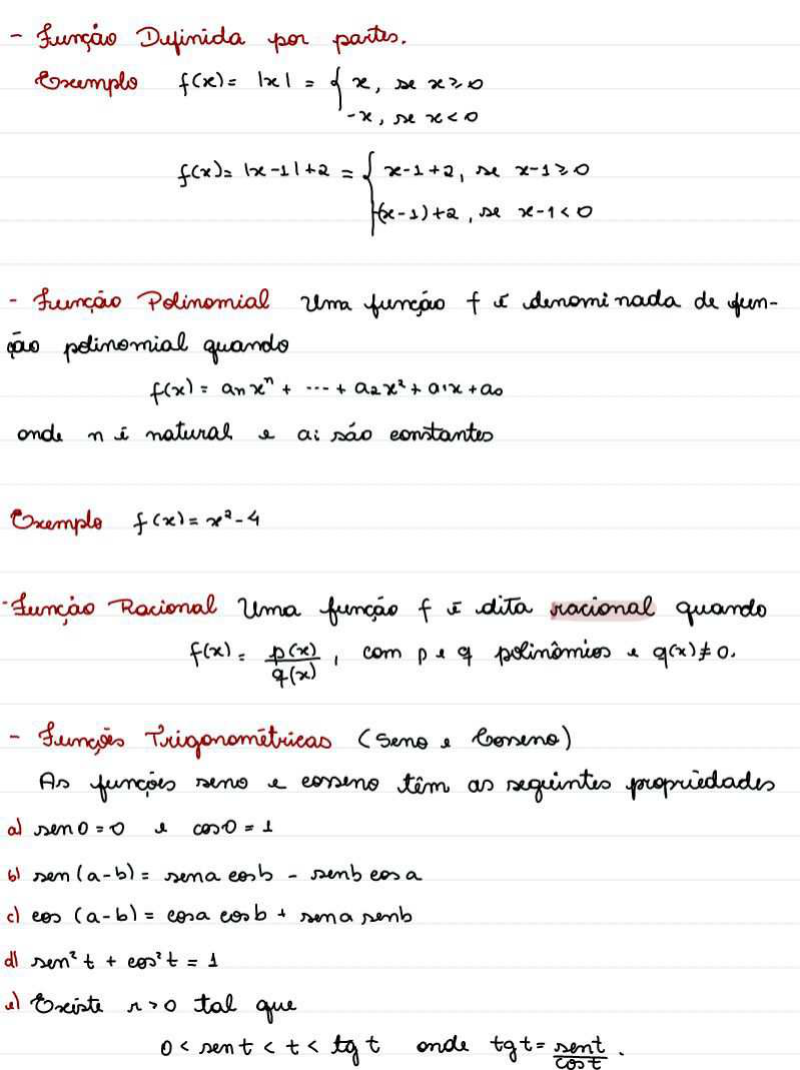 - Função Definida por partes.
Exemplo f(x) = |x| = { x, se x ≥ 0
-x, se x < 0
f(x) = |x-1|+2 = { x-1+2, se x-1 ≥ 0
-(x-1)+2, se x-1 < 0
- Função Polinomial Uma função f é denominada de fun-
ção polinomial quando
f(x) = aₙxⁿ + ··· + a₂x² + a₁x + a₀
onde n é natural e aᵢ são constantes
Exemplo f(x) = x² - 4
- Função Racional Uma função f é dita racional quando
f(x) = p(x)/q(x), com p e q polinômios e q(x) ≠ 0.
- Funções Trigonométricas (Seno e Cosseno)
As funções seno e cosseno têm as seguintes propriedades
a) sen 0 = 0 e cos 0 = 1
b) sen (a-b) = sen a cos b - sen b cos a
c) cos (a-b) = cos a cos b + sen a sen b
d) sen² t + cos² t = 1
e) Existe r > 0 tal que
0 < sen t < t < tg t onde tg t = sen t/cos t.